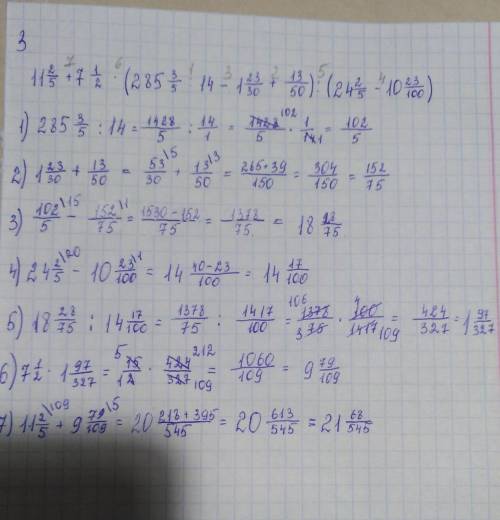 3
7 6 1 3 2 5 4
11 2/5 + 7 1/2 · (285 3/5 : 14 - 1 23/30 + 13/50) : (24 2/5 - 10 23/100)
1) 285 3/5 : 14 = 1428/5 : 14/1 = 1428/5 102 · 1/14 1 = 102/5
2) 1 23/30 + 13/50 = 53/30 \5 + 13/50 \3 = 265+39/150 = 304/150 = 152/75
3) 102/5 \15 - 152/75 \1 = 1530-152/75 = 1378/75 = 18 28/75
4) 24 2/5 \20 - 10 23/100 \1 = 14 40-23/100 = 14 17/100
5) 18 28/75 : 14 17/100 = 1378/75 : 1417/100 = 106 1378/3 75 · 4 100/1417 109 = 424/327 = 1 97/327
6) 7 1/2 · 1 97/327 = 5 15/1 2 · 424 212/327 109 = 1060/109 = 9 79/109
7) 11 2/5 \109 + 9 79/109 \5 = 20 218+395/545 = 20 613/545 = 21 68/545